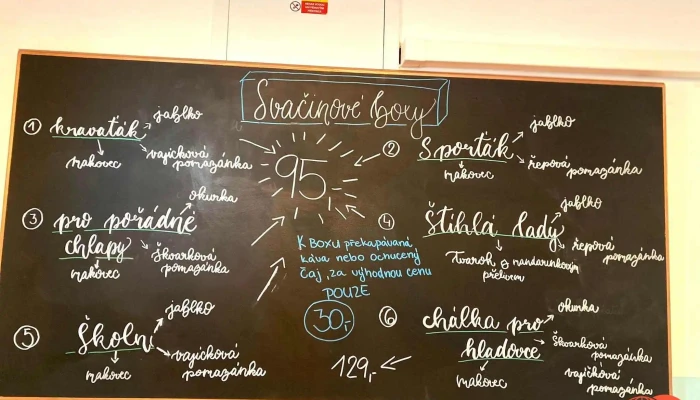 Svačinové boxy
95
① kravaťák
jablko
vajíčková
pomazánka
makovec
② Sporťák
jablko
řepová
pomazánka
makovec
③ pro pořádné
chlapy
okurka
škvarková
pomazánka
makovec
④ Štíhlá lady
jablko
řepová
pomazánka
Tvaroh s mandarinkovým
přelivem
K BOXU překapávaná
káva nebo ochucený
čaj, za výhodnou cenu
POUZE
30,-
⑤ Školní
jablko
vajíčková
pomazánka
makovec
⑥ chálka pro
hladovce
okurka
škvarková
pomazánka
vajíčková
pomazánka
makovec
129,-